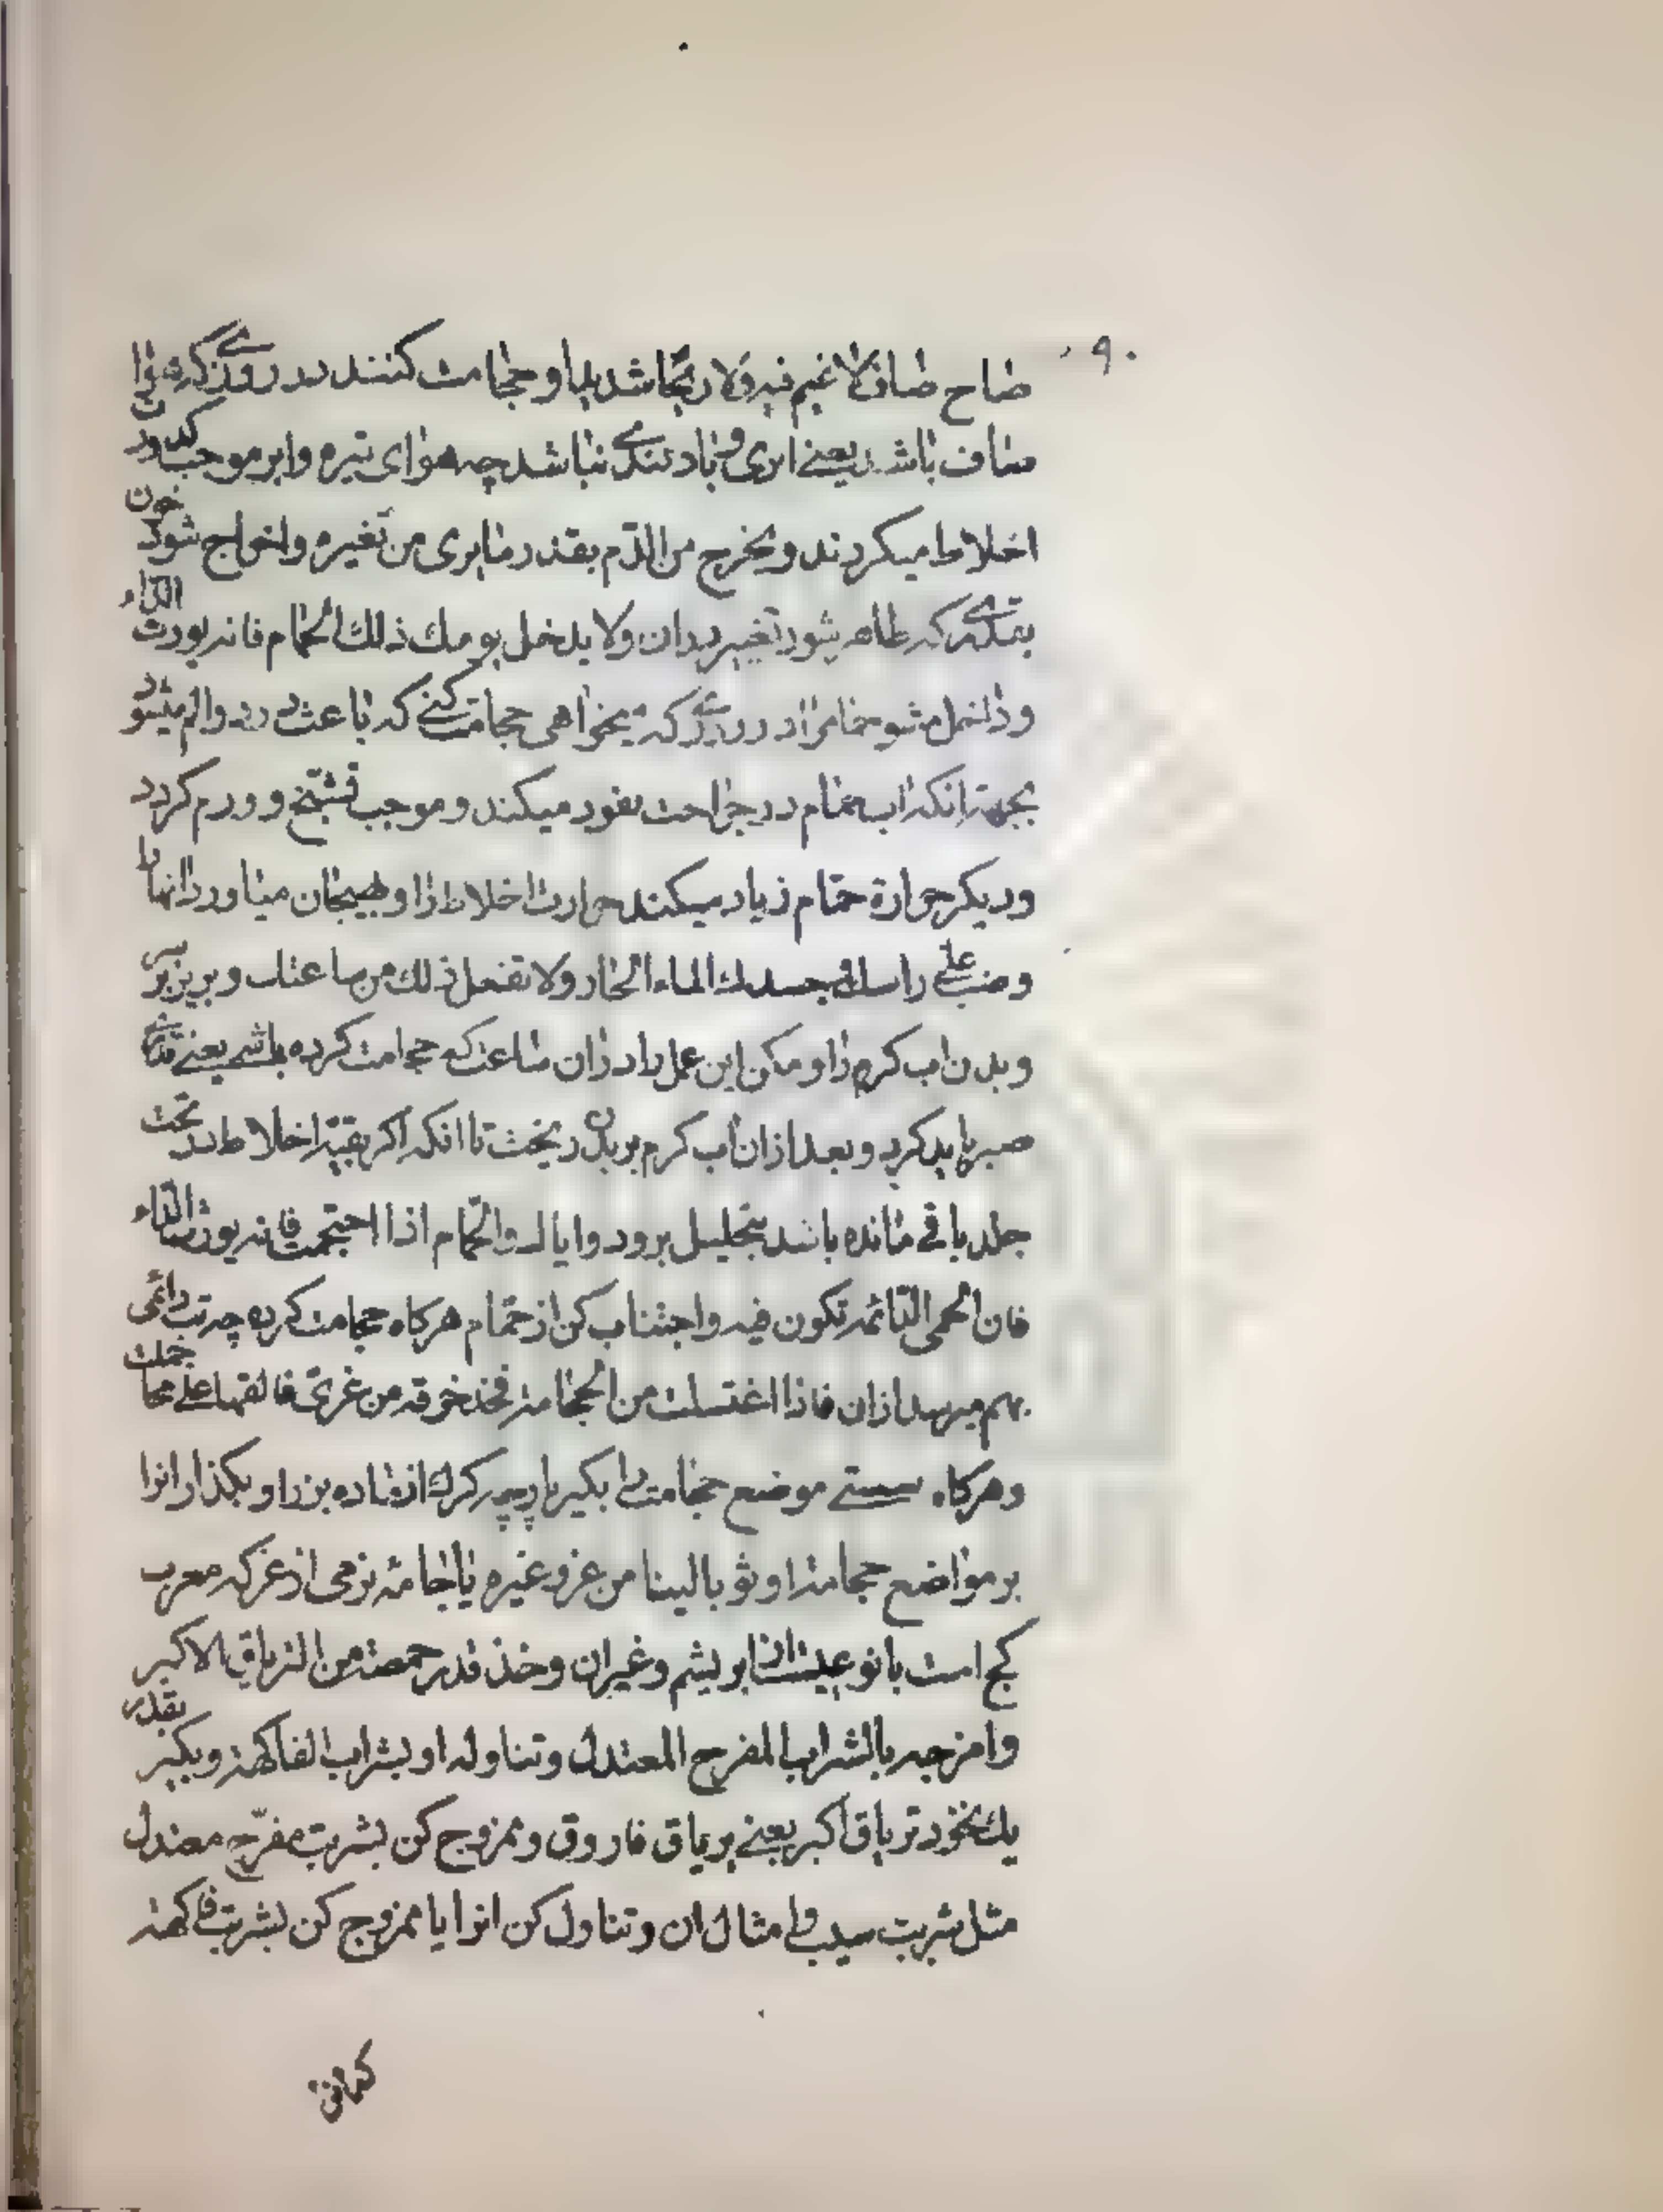 ۹۰
صاح صاف لا غیم فیه و لا ریحا شدیدا و حجامت کنند در روزی که هوا
صاف باشد یعنی ابری و باد تندی نباشد چه هوای تیره و ابر موجب کدورت
اخلاط میکردند و یخرج من الدم بقدر ما یری من تغیره و اخراج شود خون
بقدری که ظاهر شود تغییر در ان و لا یدخل یومك ذلك الحمام فانه یورث الداء
و داخل مشو حمام را در روزی که میخواهی حجامت کنی که باعث درد و الم میشود
بجهة انکه اب حمام در جراحت نفود میکند و موجب تشنج و ورم کردد
و دیکر حرارة حمام زیاد میکند حرارت اخلاط را و بهیجان میاورد انها را
و صب علی راسك و جسدك الماء الحار و لا تفعل ذلك من ساعتك و بریز بر سر
و بدن اب کرم را و مکن این عمل را در ان ساعت که حجامت کرده باشی یعنی
صبر باید کرد و بعد از ان اب کرم بر بدن ریخت تا انکه اکر بقیة اخلاط در تحت
جلد باقی مانده باشد بتحلیل برود و ایاك و الحمام اذا احتجمت فانه یورث الداء
فان الحمی الدائمه تکون فیه و اجتناب کن از حمام هرکاه حجامت کرده چه تب دائمی
بهم میرسد از ان فاذا اغتسلت من الحجامة فخذ خرقه من غری فالقها علی محاجمك
و هرکاه شستی موضع حجامت را بکیر پارچه کرك از ماده بز را و بکذار انرا
بر مواضع حجامت او ثوبا لینا من غز و غیره یا جامۀ نرمی از غز که معرب
کج است با نوعیست از ابریشم و غیر ان و خذ قدر حمصة من التریاق الاکبر
و امزجه بالشراب المفرح المعتدل و تناوله او بشراب الفاکهة و بکیر بقدر
یك نخود تریاق اکبر یعنی پریاق فاروق و ممزوج کن بشربت مفرّح معتدل
مثل شربت سیب و امثال ان و تناول کن انرا یا ممزوج کن بشربت فاکهة